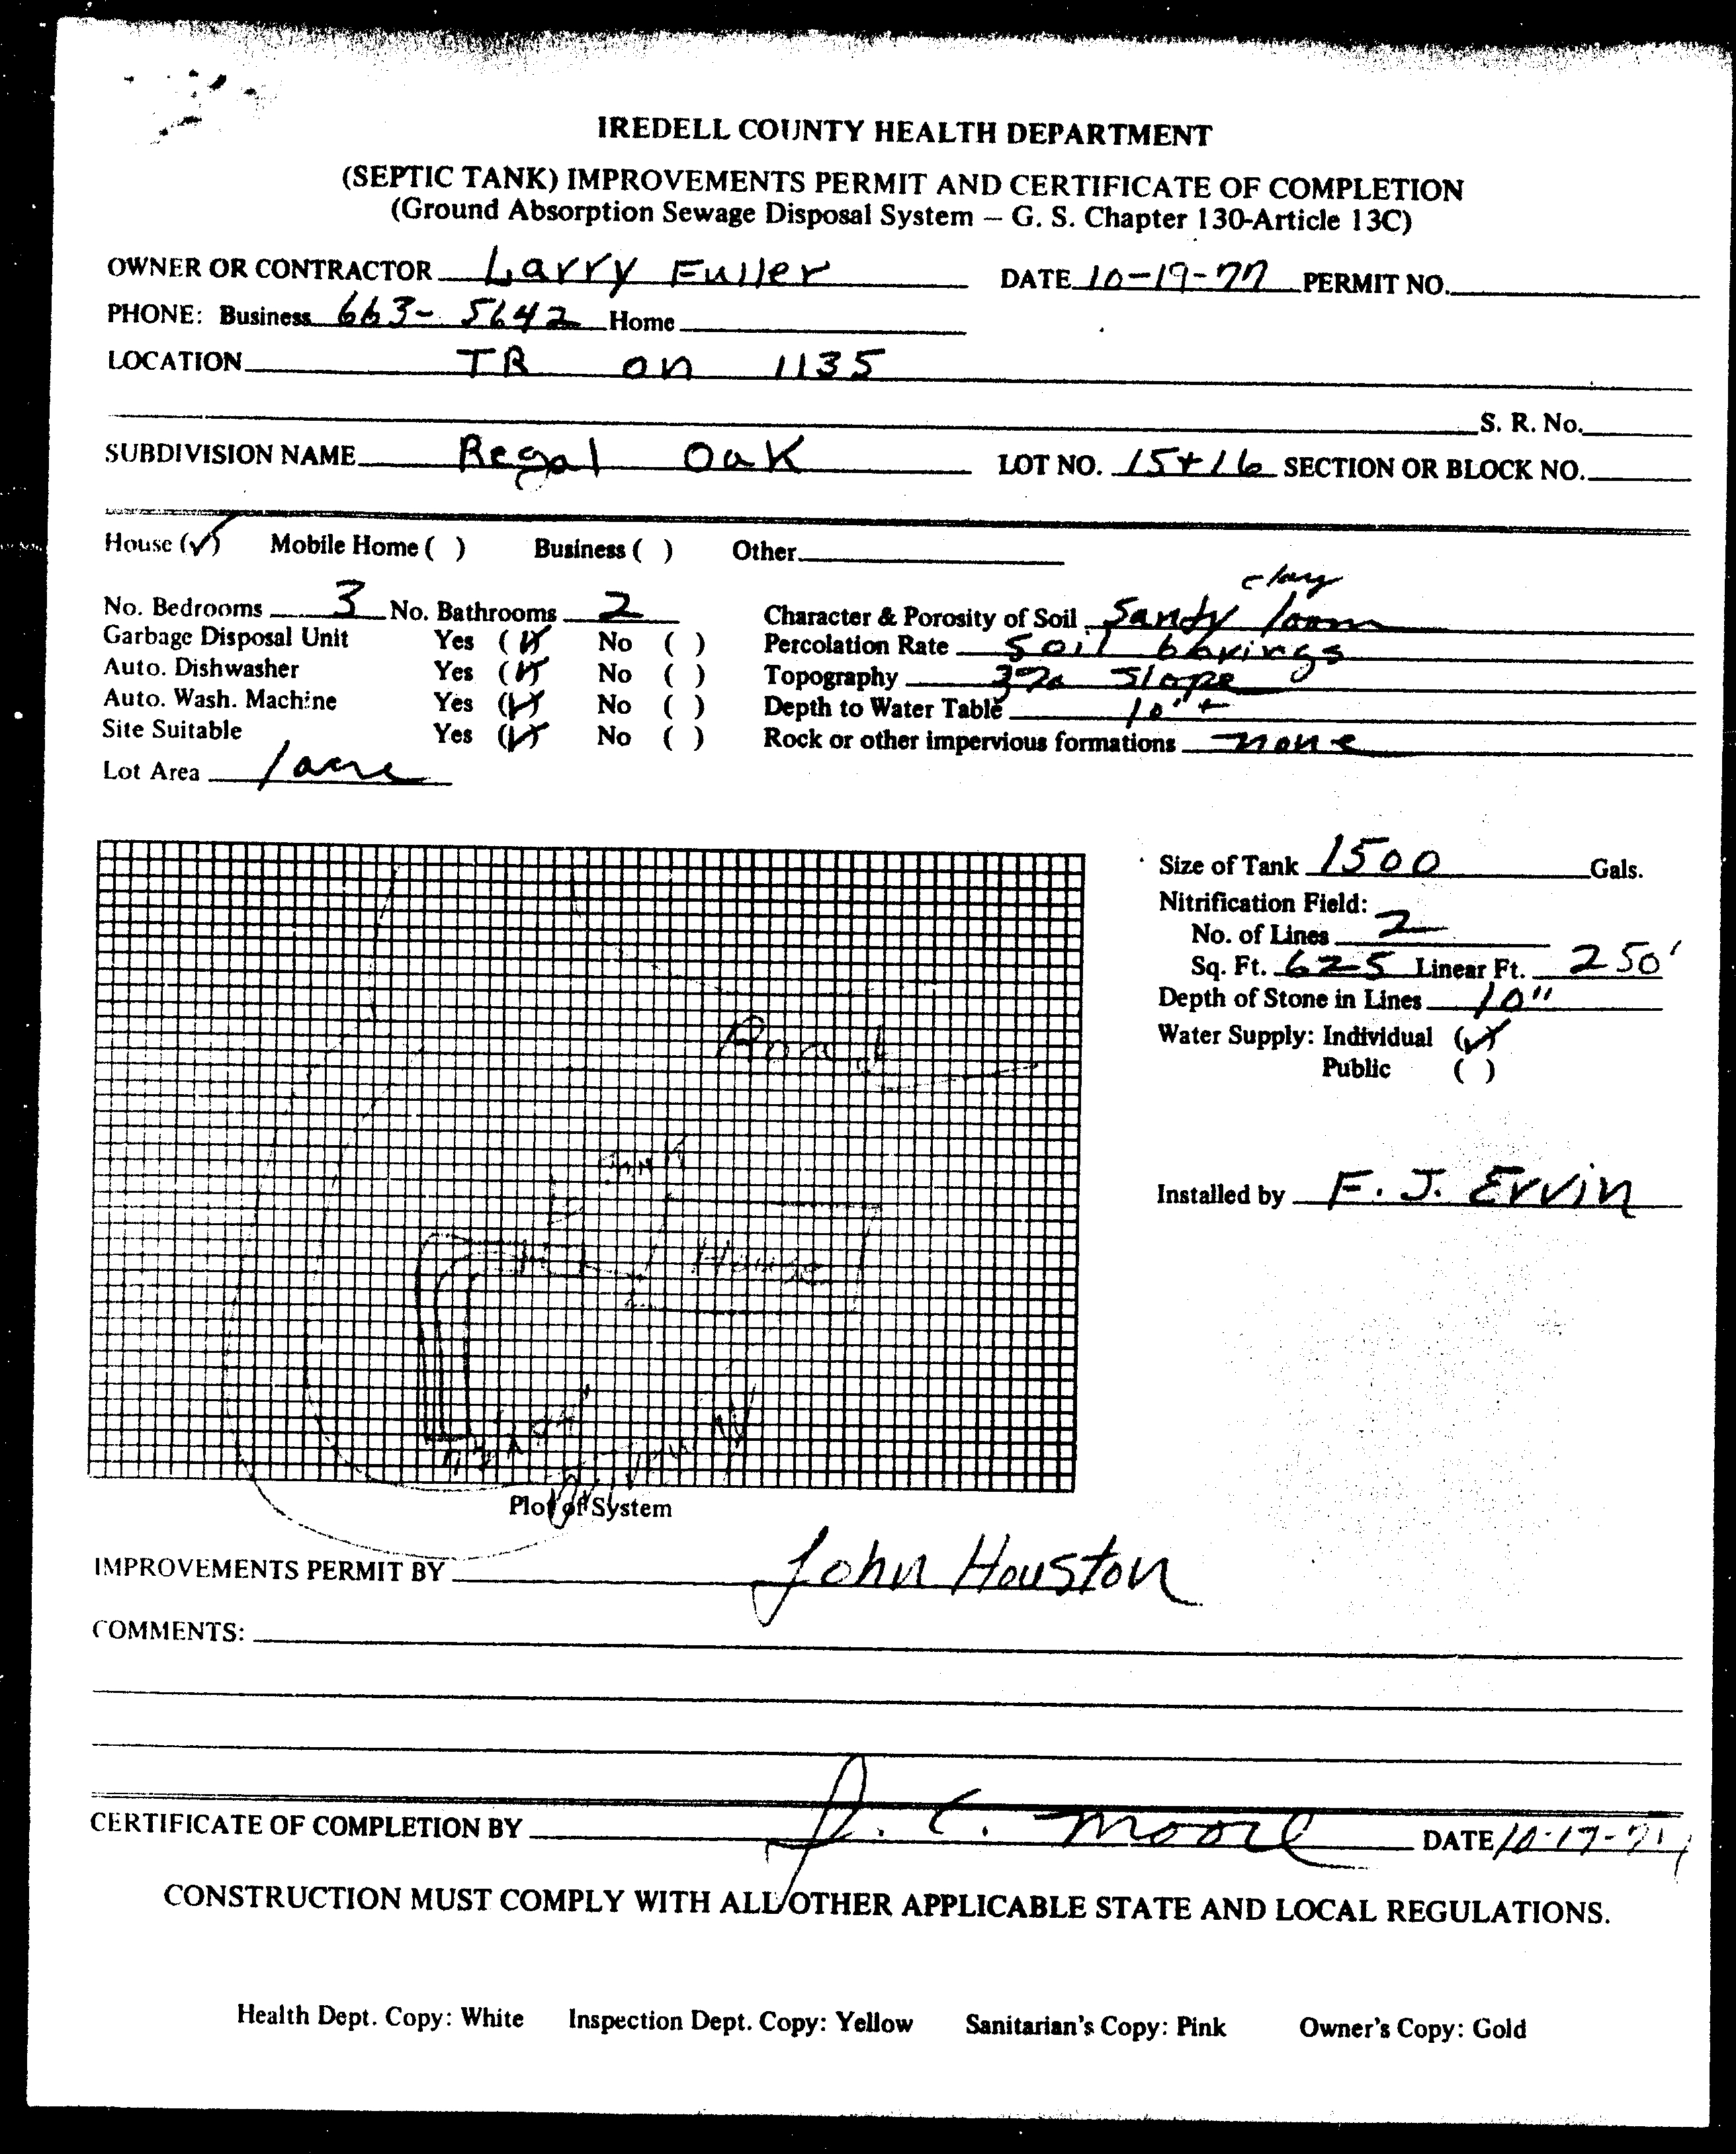 IREDELL COUNTY HEALTH DEPARTMENT
(SEPTIC TANK) IMPROVEMENTS PERMIT AND CERTIFICATE OF COMPLETION
(Ground Absorption Sewage Disposal System – G. S. Chapter 130-Article 13C)
OWNER OR CONTRACTOR Larry Fuller DATE 10-19-77 PERMIT NO.
PHONE: Business 663-5642 Home
LOCATION TR on 1135
S. R. No.
SUBDIVISION NAME Regal Oak LOT NO. 15+16 SECTION OR BLOCK NO.
House (✓) Mobile Home ( ) Business ( ) Other
clay
No. Bedrooms 3 No. Bathrooms 2 Character & Porosity of Soil Sandy loam
Garbage Disposal Unit Yes (✓) No ( ) Percolation Rate Soil borings
Auto. Dishwasher Yes (✓) No ( ) Topography 3% Slope
Auto. Wash. Machine Yes (✓) No ( ) Depth to Water Table 10'+
Site Suitable Yes (✓) No ( ) Rock or other impervious formations none
Lot Area 1 acre
Size of Tank 1500 Gals.
Nitrification Field:
No. of Lines 2
Sq. Ft. 625 Linear Ft. 250'
Depth of Stone in Lines 10"
Water Supply: Individual (✓)
Public ( )
Tank
Installed by F. J. Ervin
House
Plot of System
IMPROVEMENTS PERMIT BY John Houston
COMMENTS:
CERTIFICATE OF COMPLETION BY J. C. Moore DATE
CONSTRUCTION MUST COMPLY WITH ALL OTHER APPLICABLE STATE AND LOCAL REGULATIONS.
Health Dept. Copy: White Inspection Dept. Copy: Yellow Sanitarian's Copy: Pink Owner's Copy: Gold